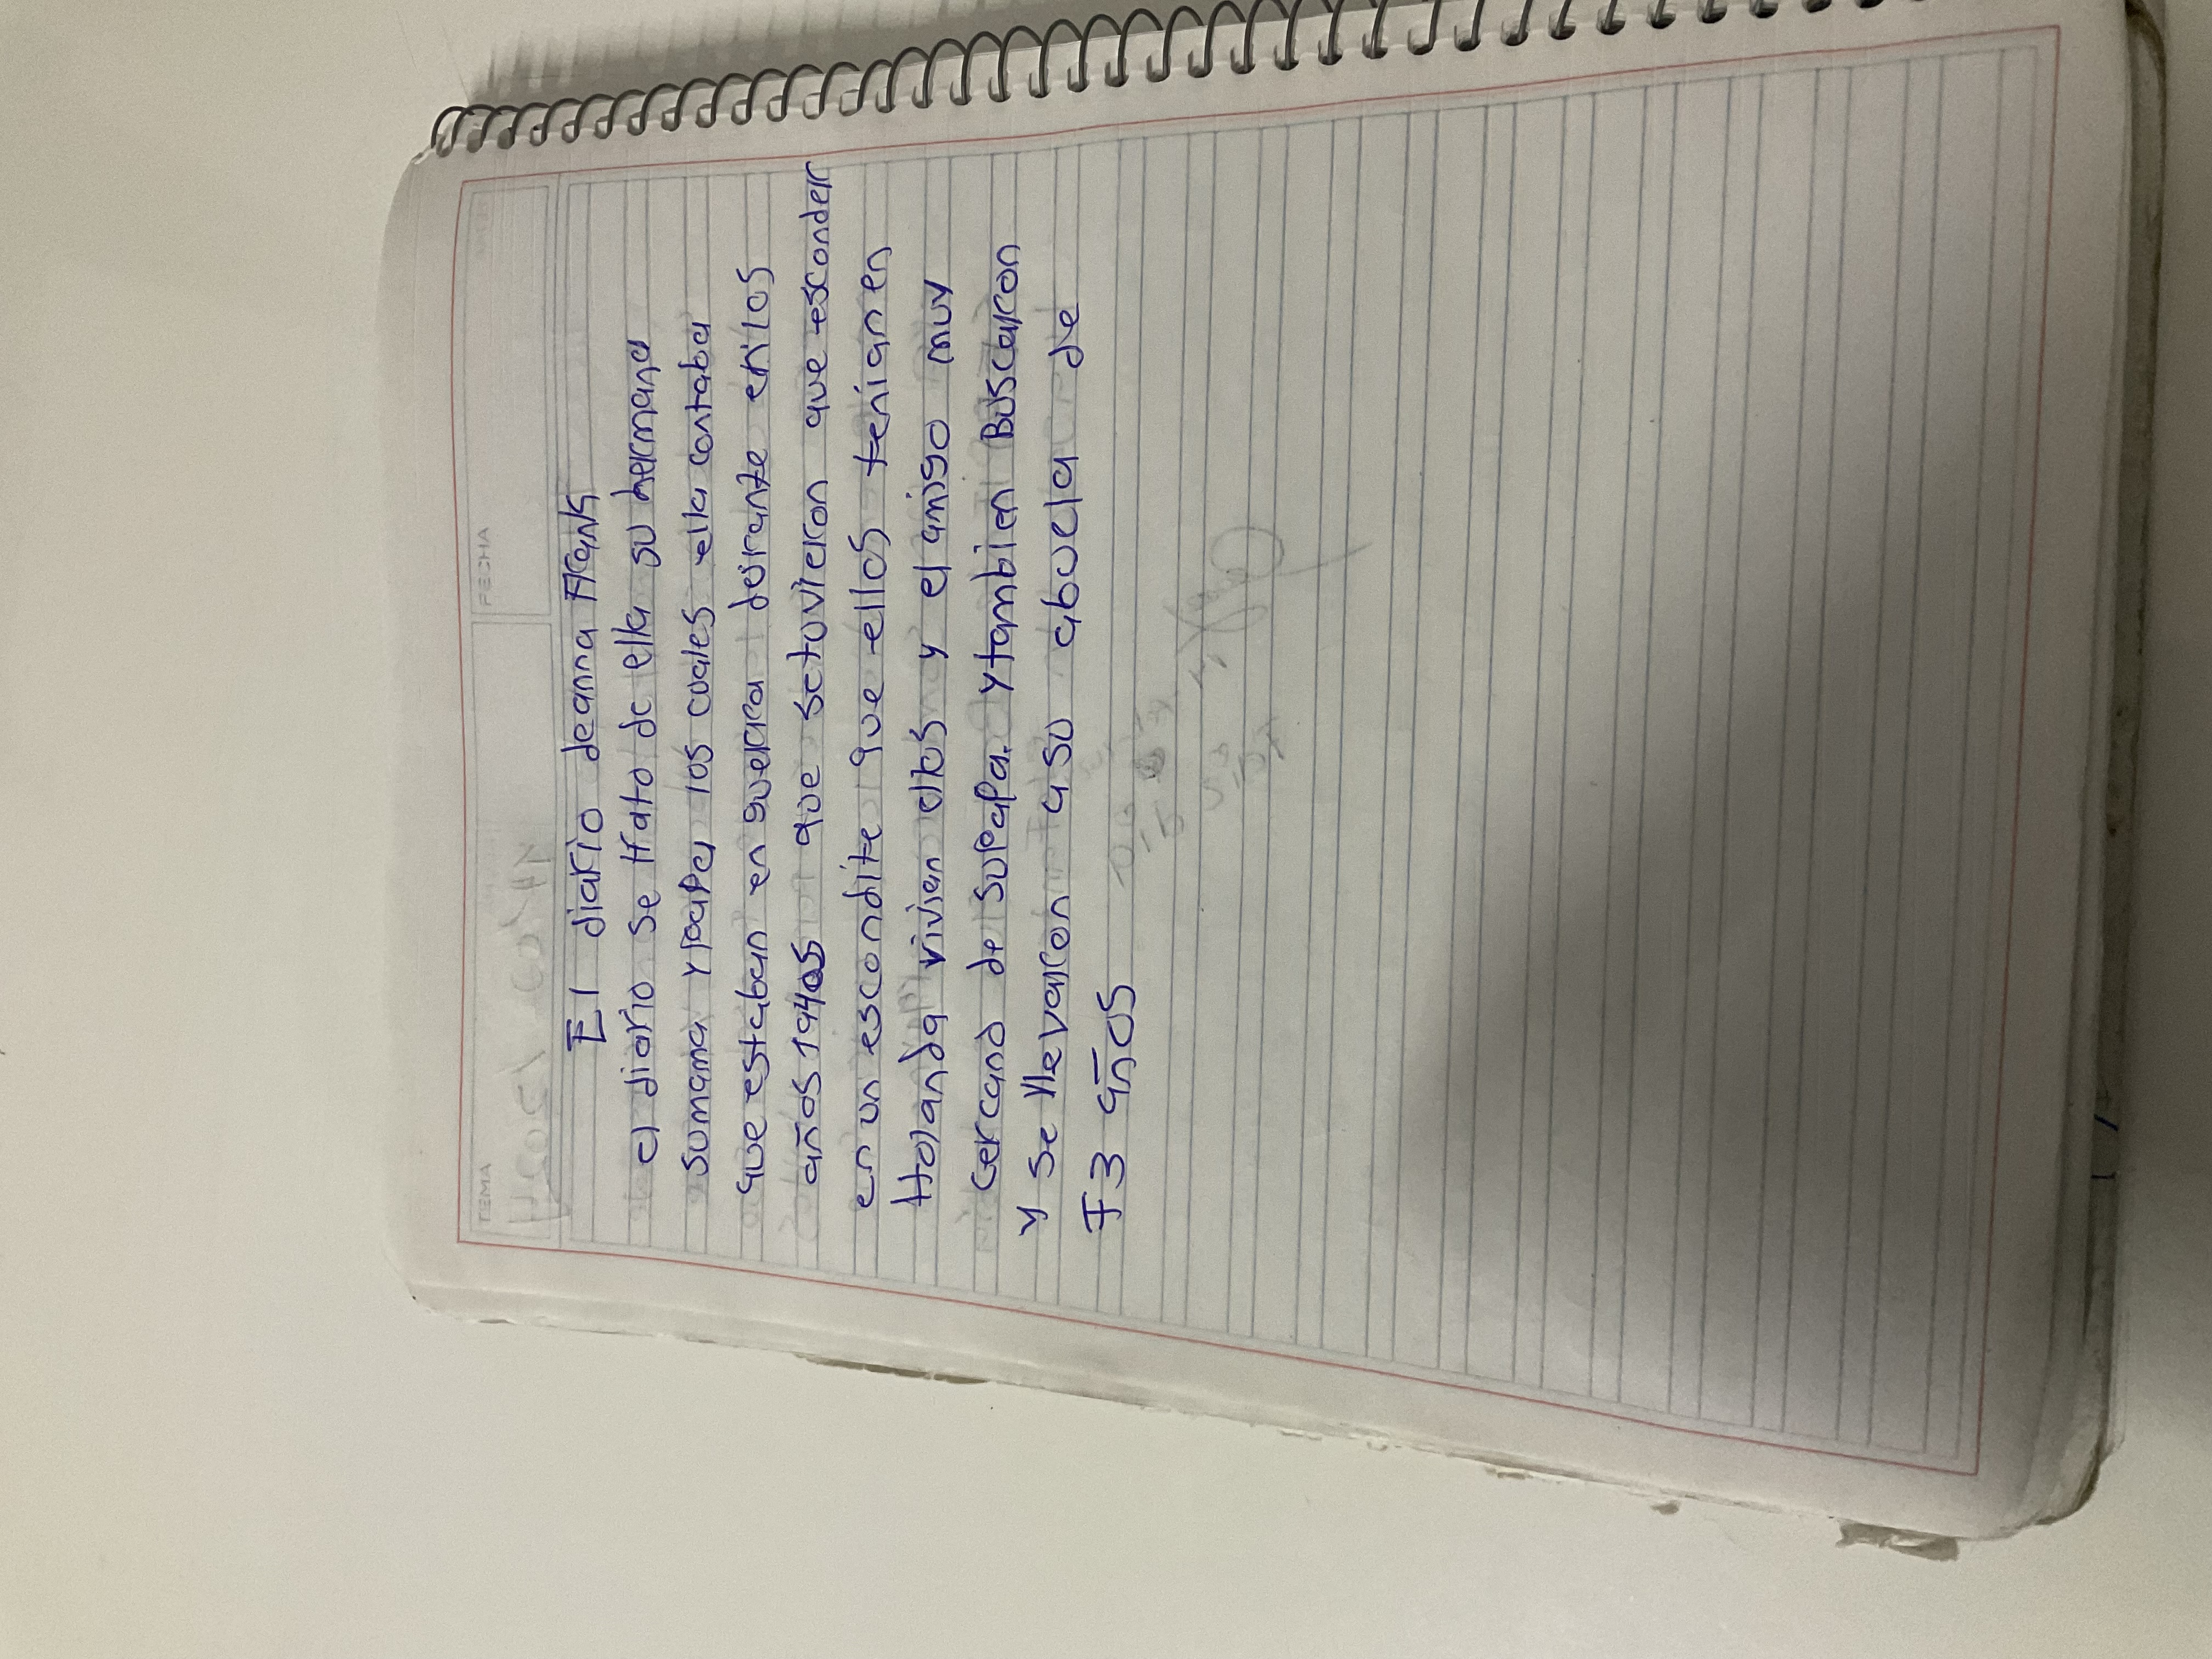 TEMA
FECHA
El diario deanna Frank
el diario se trato de ella su hermana
sumama y papa los cuales ella contaba
que estaban en guerra durante en los
años 1940s que se tuvieron que esconder
en un escondite que ellos tenian en
Holanda vivien ellos y el amigo muy
cercano de su papa. y tambien Buscaron
y se llevaron a su abuela de
73 años